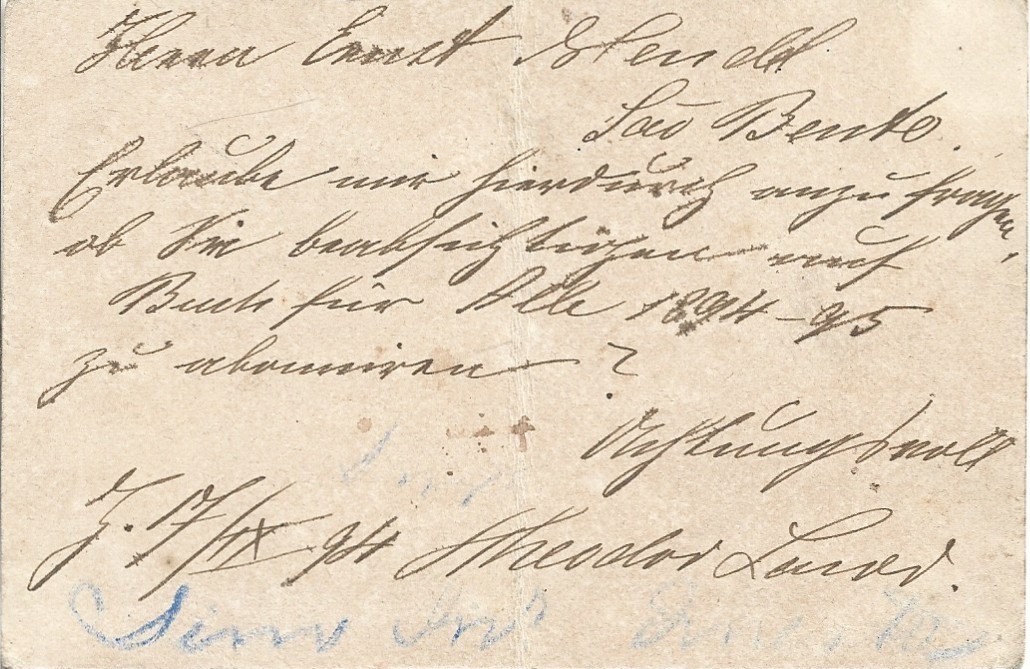 Herrn Ernst
São Bento.
Erlaube mir hierdurch anzufragen,
ob Sie beabsichtigen auf
Buch für Alle 1894-95
zu abonniren ?
Achtungsvoll
J. 17/IX 94 Theodor